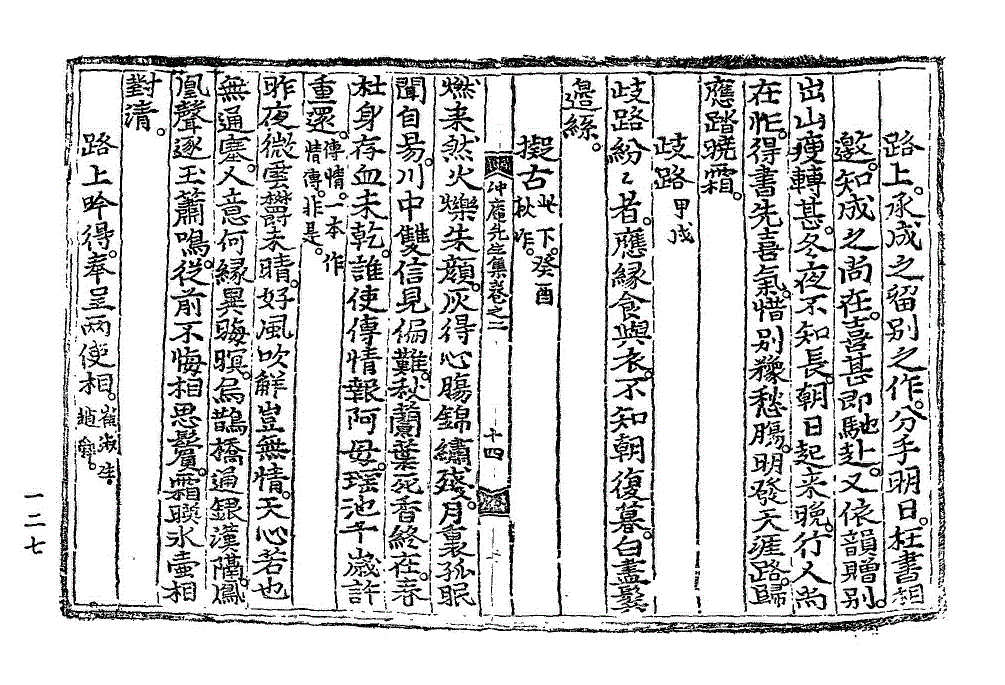 路上。承成之留別之作。分手明日。枉書相
邀。知成之尚在。喜甚即馳赴。又依韻贈別。
出山瘦轉甚。冬夜不知長。朝日起来晚。行人尚
在怍。得書先喜氣。惜別豫愁膓。明發天涯路。歸
應踏曉霜。
歧路 甲戌
歧路紛〻者。應緣食與衣。不知朝復暮。白盡鬂
邉絲。
擬古 此下。癸酉
秋作。
冲庵先生集卷之二 十四
燃来然火爍朱顔。灰得心膓錦繡殘。月裏孤眠
聞自易。川中雙信見偏難。秋蘭葉死香終在。春
杜身存血未乾。誰使傳情報阿母。瑶池千歲許
重還。傳情。一本作
情傳。非是。
昨夜微雲欝未晴。好風吹觧豈無情。天心若也
無通塞。人意何緣異晦暝。烏鵲橋通銀漢隔。鳳
凰聲逐玉簫鳴。從前不悔相思鬂。霜映氷壷相
對清。
路上吟得。奉呈兩使相。崔淑生
趙
一二七